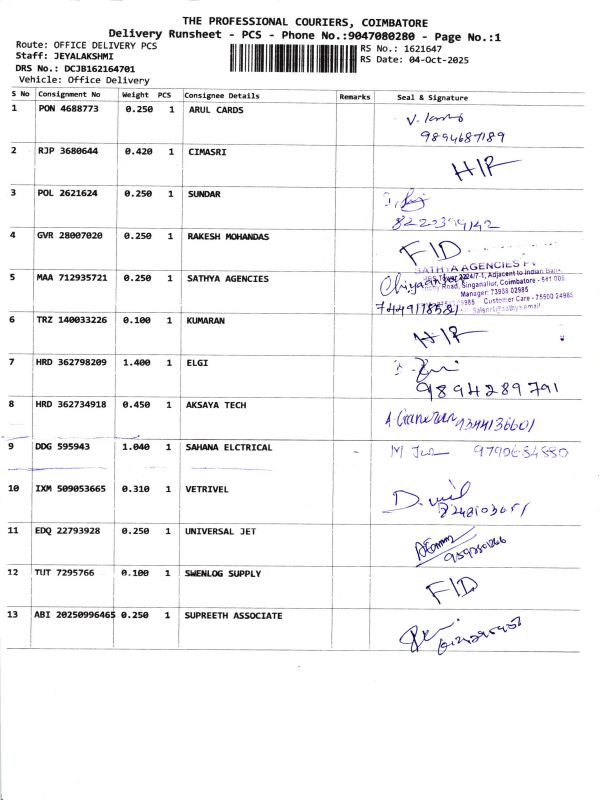 THE PROFESSIONAL COURIERS, COIMBATORE
Delivery Runsheet - PCS - Phone No.:9047080280 - Page No.:1
Route: OFFICE DELIVERY PCS
Staff: JEYALAKSHMI
DRS No.: DCJB162164701
Vehicle: Office Delivery
RS No.: 1621647
RS Date: 04-Oct-2025
S No Consignment No Weight PCS Consignee Details Remarks Seal & Signature
1 PON 4688773 0.250 1 ARUL CARDS
9894687189
2 RJP 3680644 0.420 1 CIMASRI
3 POL 2621624 0.250 1 SUNDAR
4 GVR 28007020 0.250 1 RAKESH MOHANDAS F/D
SATHYA AGENCIES
Adjacent to Indian Bank,
5 MAA 712935721 0.250 1 SATHYA AGENCIES
Singanallur, Coimbatore - 641 005
Manager: 73958 02985
Customer Care - 75500 24985
7449118581
6 TRZ 140033226 0.100 1 KUMARAN
7 HRD 362798209 1.400 1 ELGI
9894289791
8 HRD 362734918 0.450 1 AKSAYA TECH
9344136601
9 DDG 595943 1.040 1 SAHANA ELCTRICAL - 9790684880
10 IXM 509053665 0.310 1 VETRIVEL
11 EDQ 22793928 0.250 1 UNIVERSAL JET
12 TUT 7295766 0.100 1 SWENLOG SUPPLY F/D
13 ABI 20250996465 0.250 1 SUPREETH ASSOCIATE